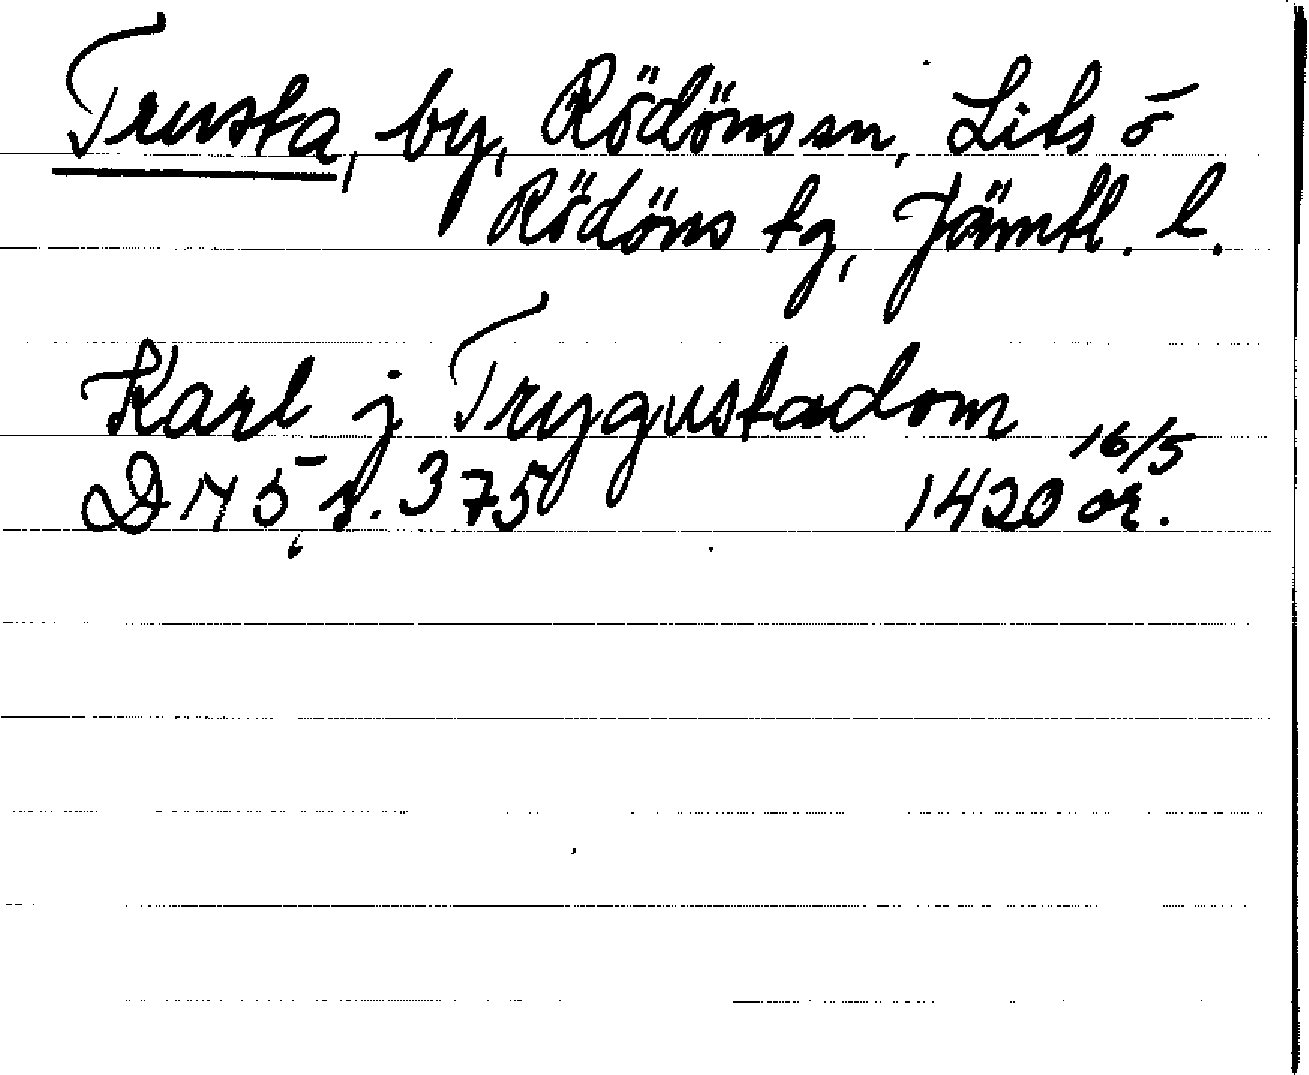 Trusta, by, Rödöns sn, Lits o
Rödöns tg, Jämtl. l.
Karl j Trygustadom
16/5
D 175, s. 375 1420 or.